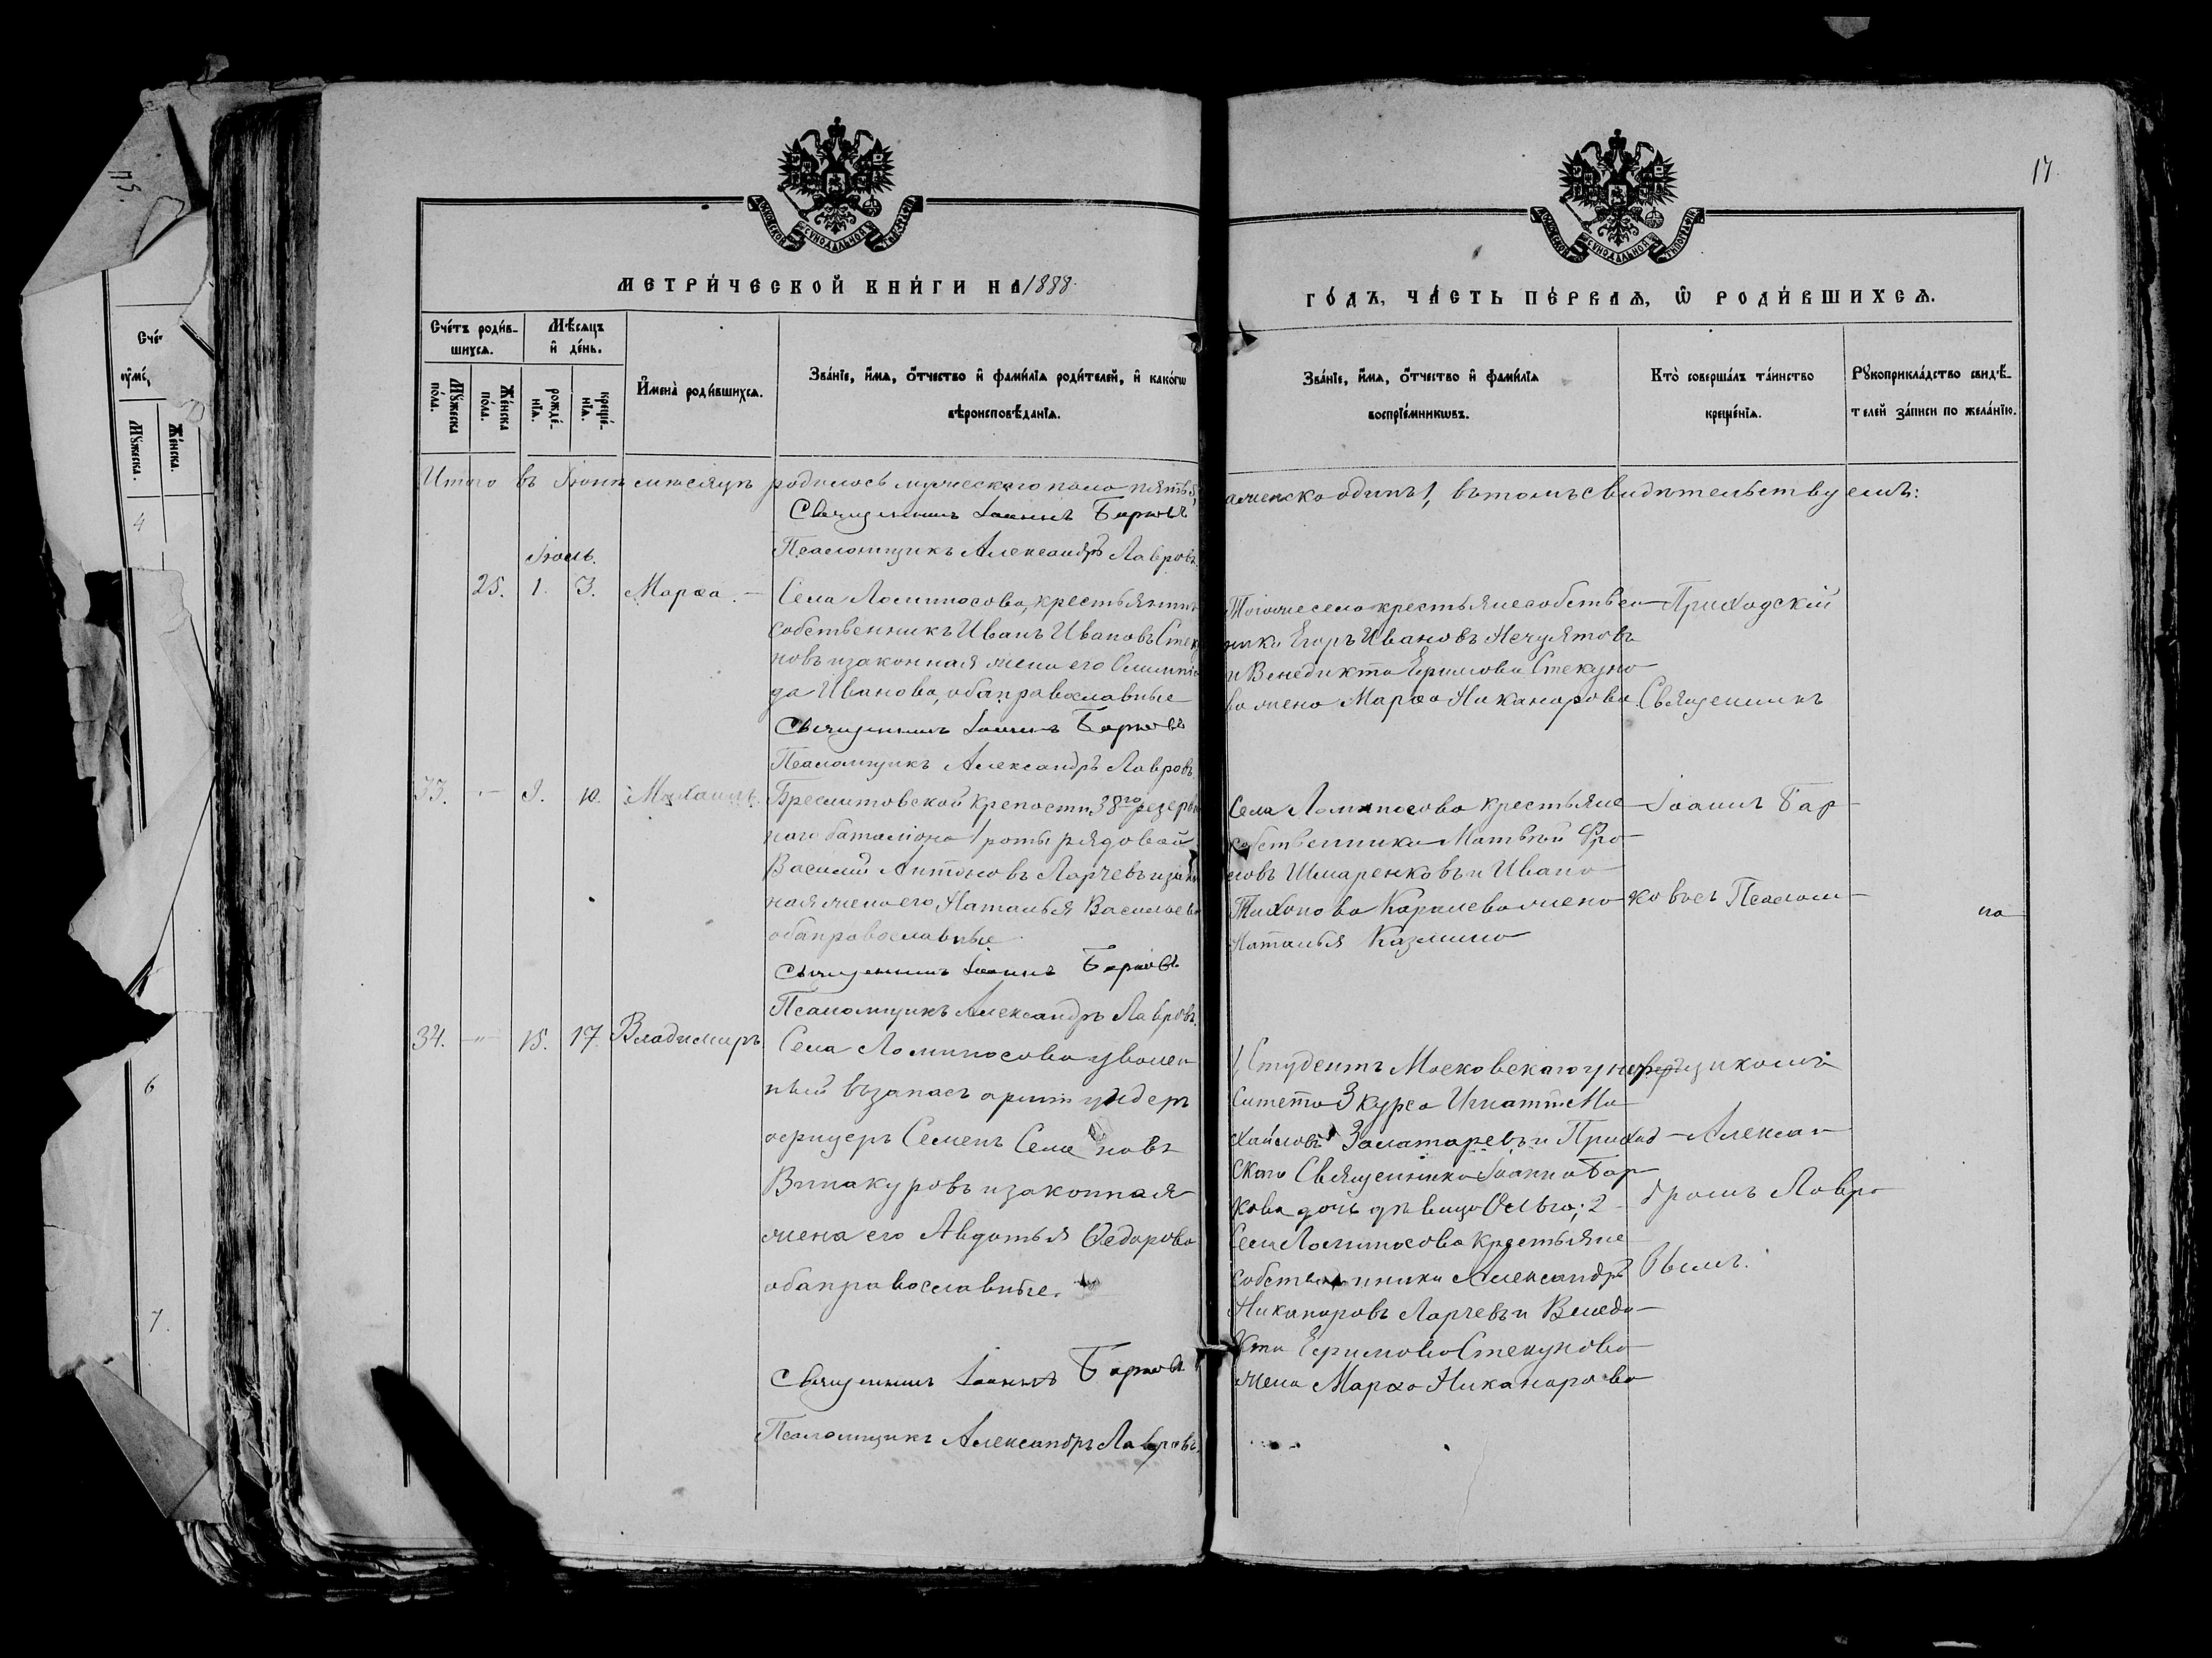 17.
МЕТРИ́ЧЕСКОЙ КНИ́ГИ НА 1888.
ГО́ДЪ, ЧА́СТЬ ПЕ́РВАѦ, Ѡ РОДИ́ВШИХСѦ.
Сче́тъ роди́в-
шихсѧ.
Мꙋ́жеска
по́ла.
Же́нска
по́ла.
Мѣ́сяцъ
и де́нь.
рожде́-
нїѧ.
креще́-
нїѧ.
Имена̀ роди́вшихсѧ.
Зва́нїе, и́мѧ, о́тчество и фами́лїѧ роди́телей, и како́гѡ
вѣроисповѣ́данїѧ.
Зва́нїе, и́мѧ, о́тчество и фами́лїѧ
воспрїе́мникѡвъ.
Кто̀ соверша́лъ та́инство
креще́нїѧ.
Рꙋкоприкла́дство свидѣ́-
телей за́писи по жела́нїю.
Итого въ Іюнѣ мѣсяцѣ родилось мужескаго пола пять 5,
женска одинъ 1, въ томъ свидѣтельствуемъ:
Священникъ Іоаннъ Барковъ
Псаломщикъ Александръ Лавровъ.
Іюль.
25. 1. 3. Марѳа.
Села Ломипосова, крестьянинъ
собственникъ Иванъ Ивановъ Стеку
новъ и законная жена его Олимпіа
да Иванова, оба православные
Священникъ Іоаннъ Барковъ
Псаломщикъ Александръ Лавровъ.
Тогоже села крестьяне собствен
ники Егоръ Ивановъ Нечулятовъ
и Венедикта Ефимова Стекуно
ва жена Марѳа Никанорова.
Приходскій
Священникъ
33. - 9. 10. Михаилъ.
Бреслитовской крепости 38го резерв
наго баталіона 1 роты рядовой
Василій Антоновъ Ларчевъ и закон
ная жена его Наталья Васильева
оба православные
Священникъ Іоаннъ Барковъ
Псаломщикъ Александръ Лавровъ.
Села Ломипосова крестьяне
собственники Матвѣй Фро
ловъ Шмаренковъ и Ивана
Тихонова Каралева жена
Наталья Казмина
Іоаннъ Бар
ковъ съ Псалом
34. - 15. 17. Владимиръ.
Села Ломипосова уволен
ный въ запасъ арміи ундеръ
офицеръ Семенъ Семеновъ
Винакуровъ и законная
жена его Авдотья Ѳедорова
оба православные.
Священникъ Іоаннъ Барковъ
Псаломщикъ Александръ Лавровъ.
1, Студентъ Московскаго универ
ситета 3 курса Игнатій Ми
хайловъ Залатаревъ и Приход
скаго Священника Іоанна Бар
кова дочь дѣвица Ольга; 2
Села Ломипосова крестьяне
собственники Александръ
Никаноровъ Ларчевъ и Венеди
кта Ефимова Стекунова
жена Марѳа Никанорова
щикомъ
Алексан
дромъ Лавро
вымъ.
Сче́
Мꙋ́жеска.
Же́нска.
4
6
7.